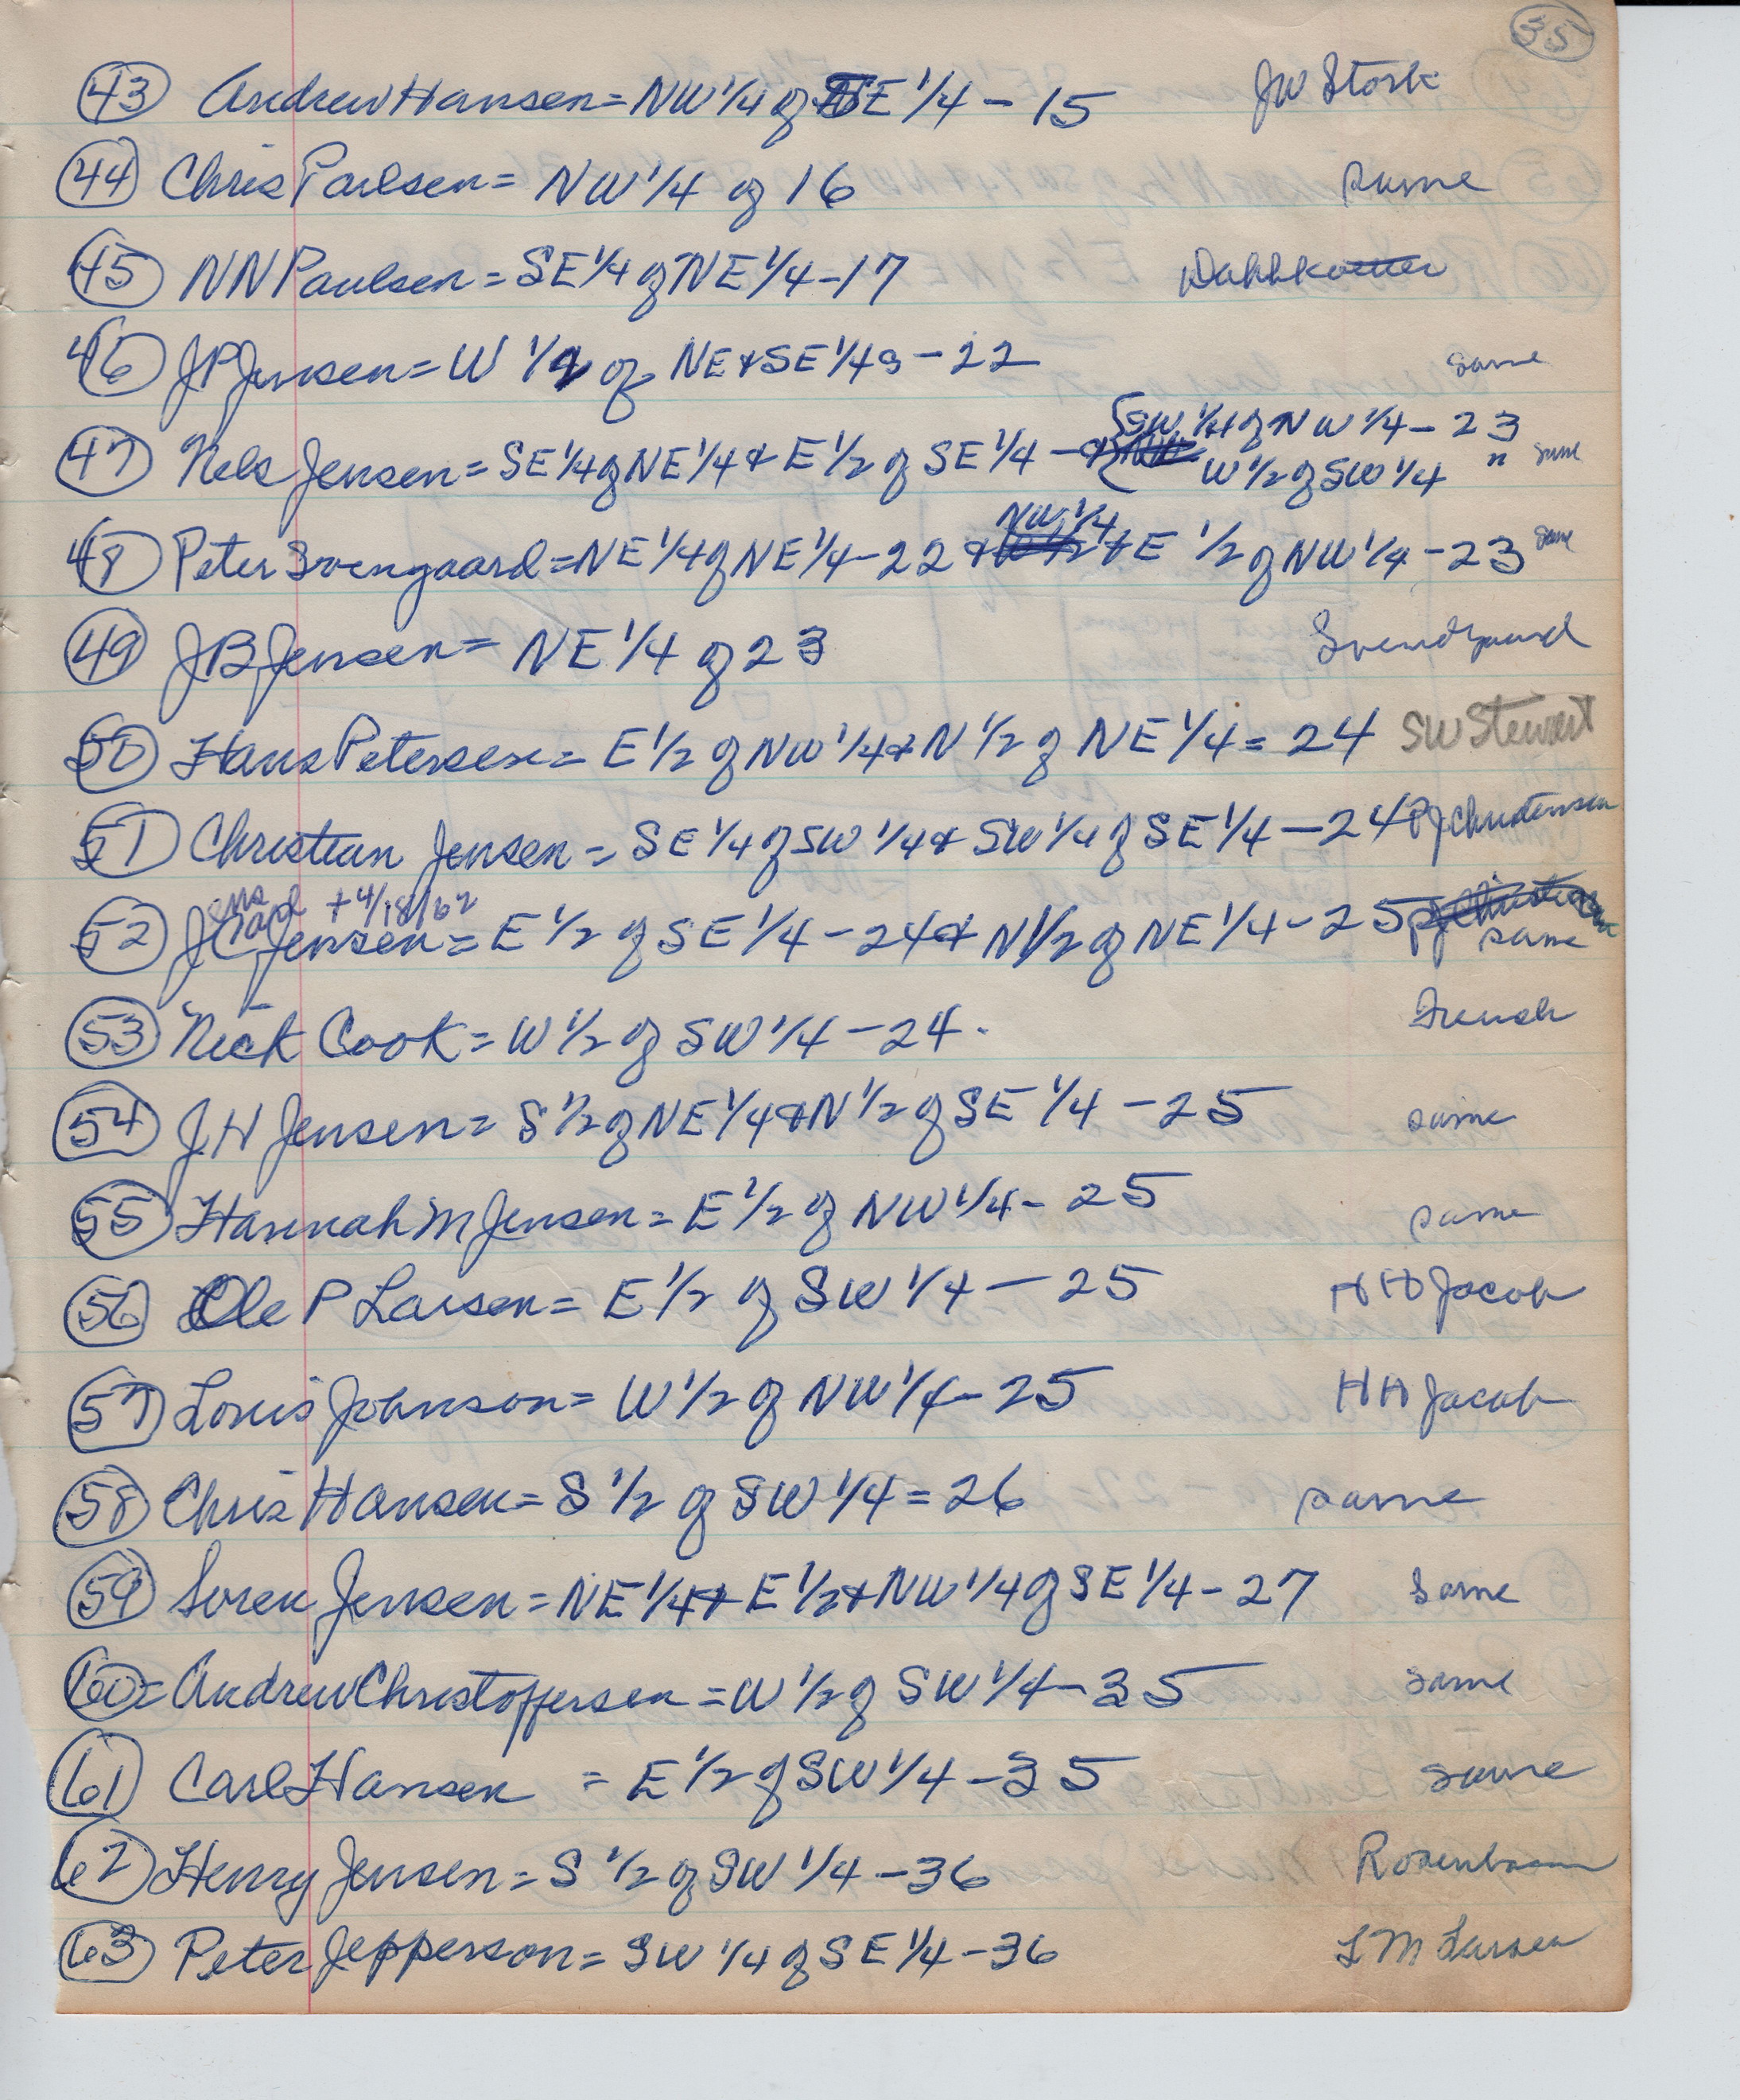 35
43 Andrew Hansen = NW 1/4 of SE 1/4 - 15 JW Stork
44 Chris Paulsen = NW 1/4 of 16 same
45 NN Paulsen = SE 1/4 of NE 1/4 - 17
46 JP Jensen = W 1/2 of NE & SE 1/4s - 22 same
SW 1/4 of NW 1/4 - 23
47 Nels Jensen = SE 1/4 of NE 1/4 & E 1/2 of SE 1/4 - & W 1/2 of SW 1/4 " same
NW 1/4
48 Peter Svengaard = NE 1/4 of NE 1/4 - 22 & + E 1/2 of NW 1/4 - 23 same
49 JB Jensen = NE 1/4 of 23 Svendgaard
50 Hans Petersen = E 1/2 of NW 1/4 & N 1/2 of NE 1/4 = 24 SW Stewert
51 Christian Jensen = SE 1/4 of SW 1/4 & SW 1/4 of SE 1/4 - 24 PJ Christensen
+ 4/18/62
52 JC Jensen = E 1/2 of SE 1/4 - 24 & N 1/2 of NE 1/4 - 25 same
53 Nick Cook = W 1/2 of SW 1/4 - 24. French
54 JH Jensen = S 1/2 of NE 1/4 & N 1/2 of SE 1/4 - 25 same
55 Hannah M Jensen = E 1/2 of NW 1/4 - 25 same
56 Ole P Larsen = E 1/2 of SW 1/4 - 25 HH Jacob
57 Louis Johnson = W 1/2 of NW 1/4 - 25 HH Jacob
58 Chris Hansen = S 1/2 of SW 1/4 = 26 same
59 Soren Jensen = NE 1/4 & E 1/2 & NW 1/4 of SE 1/4 - 27 same
60 = Andrew Christoffersen = W 1/2 of SW 1/4 - 35 same
61 Carl Hansen = E 1/2 of SW 1/4 - 35 same
62 Henry Jensen = S 1/2 of SW 1/4 - 36 Rosenbaum
63 Peter Jepperson = SW 1/4 of SE 1/4 - 36 L M Larsen